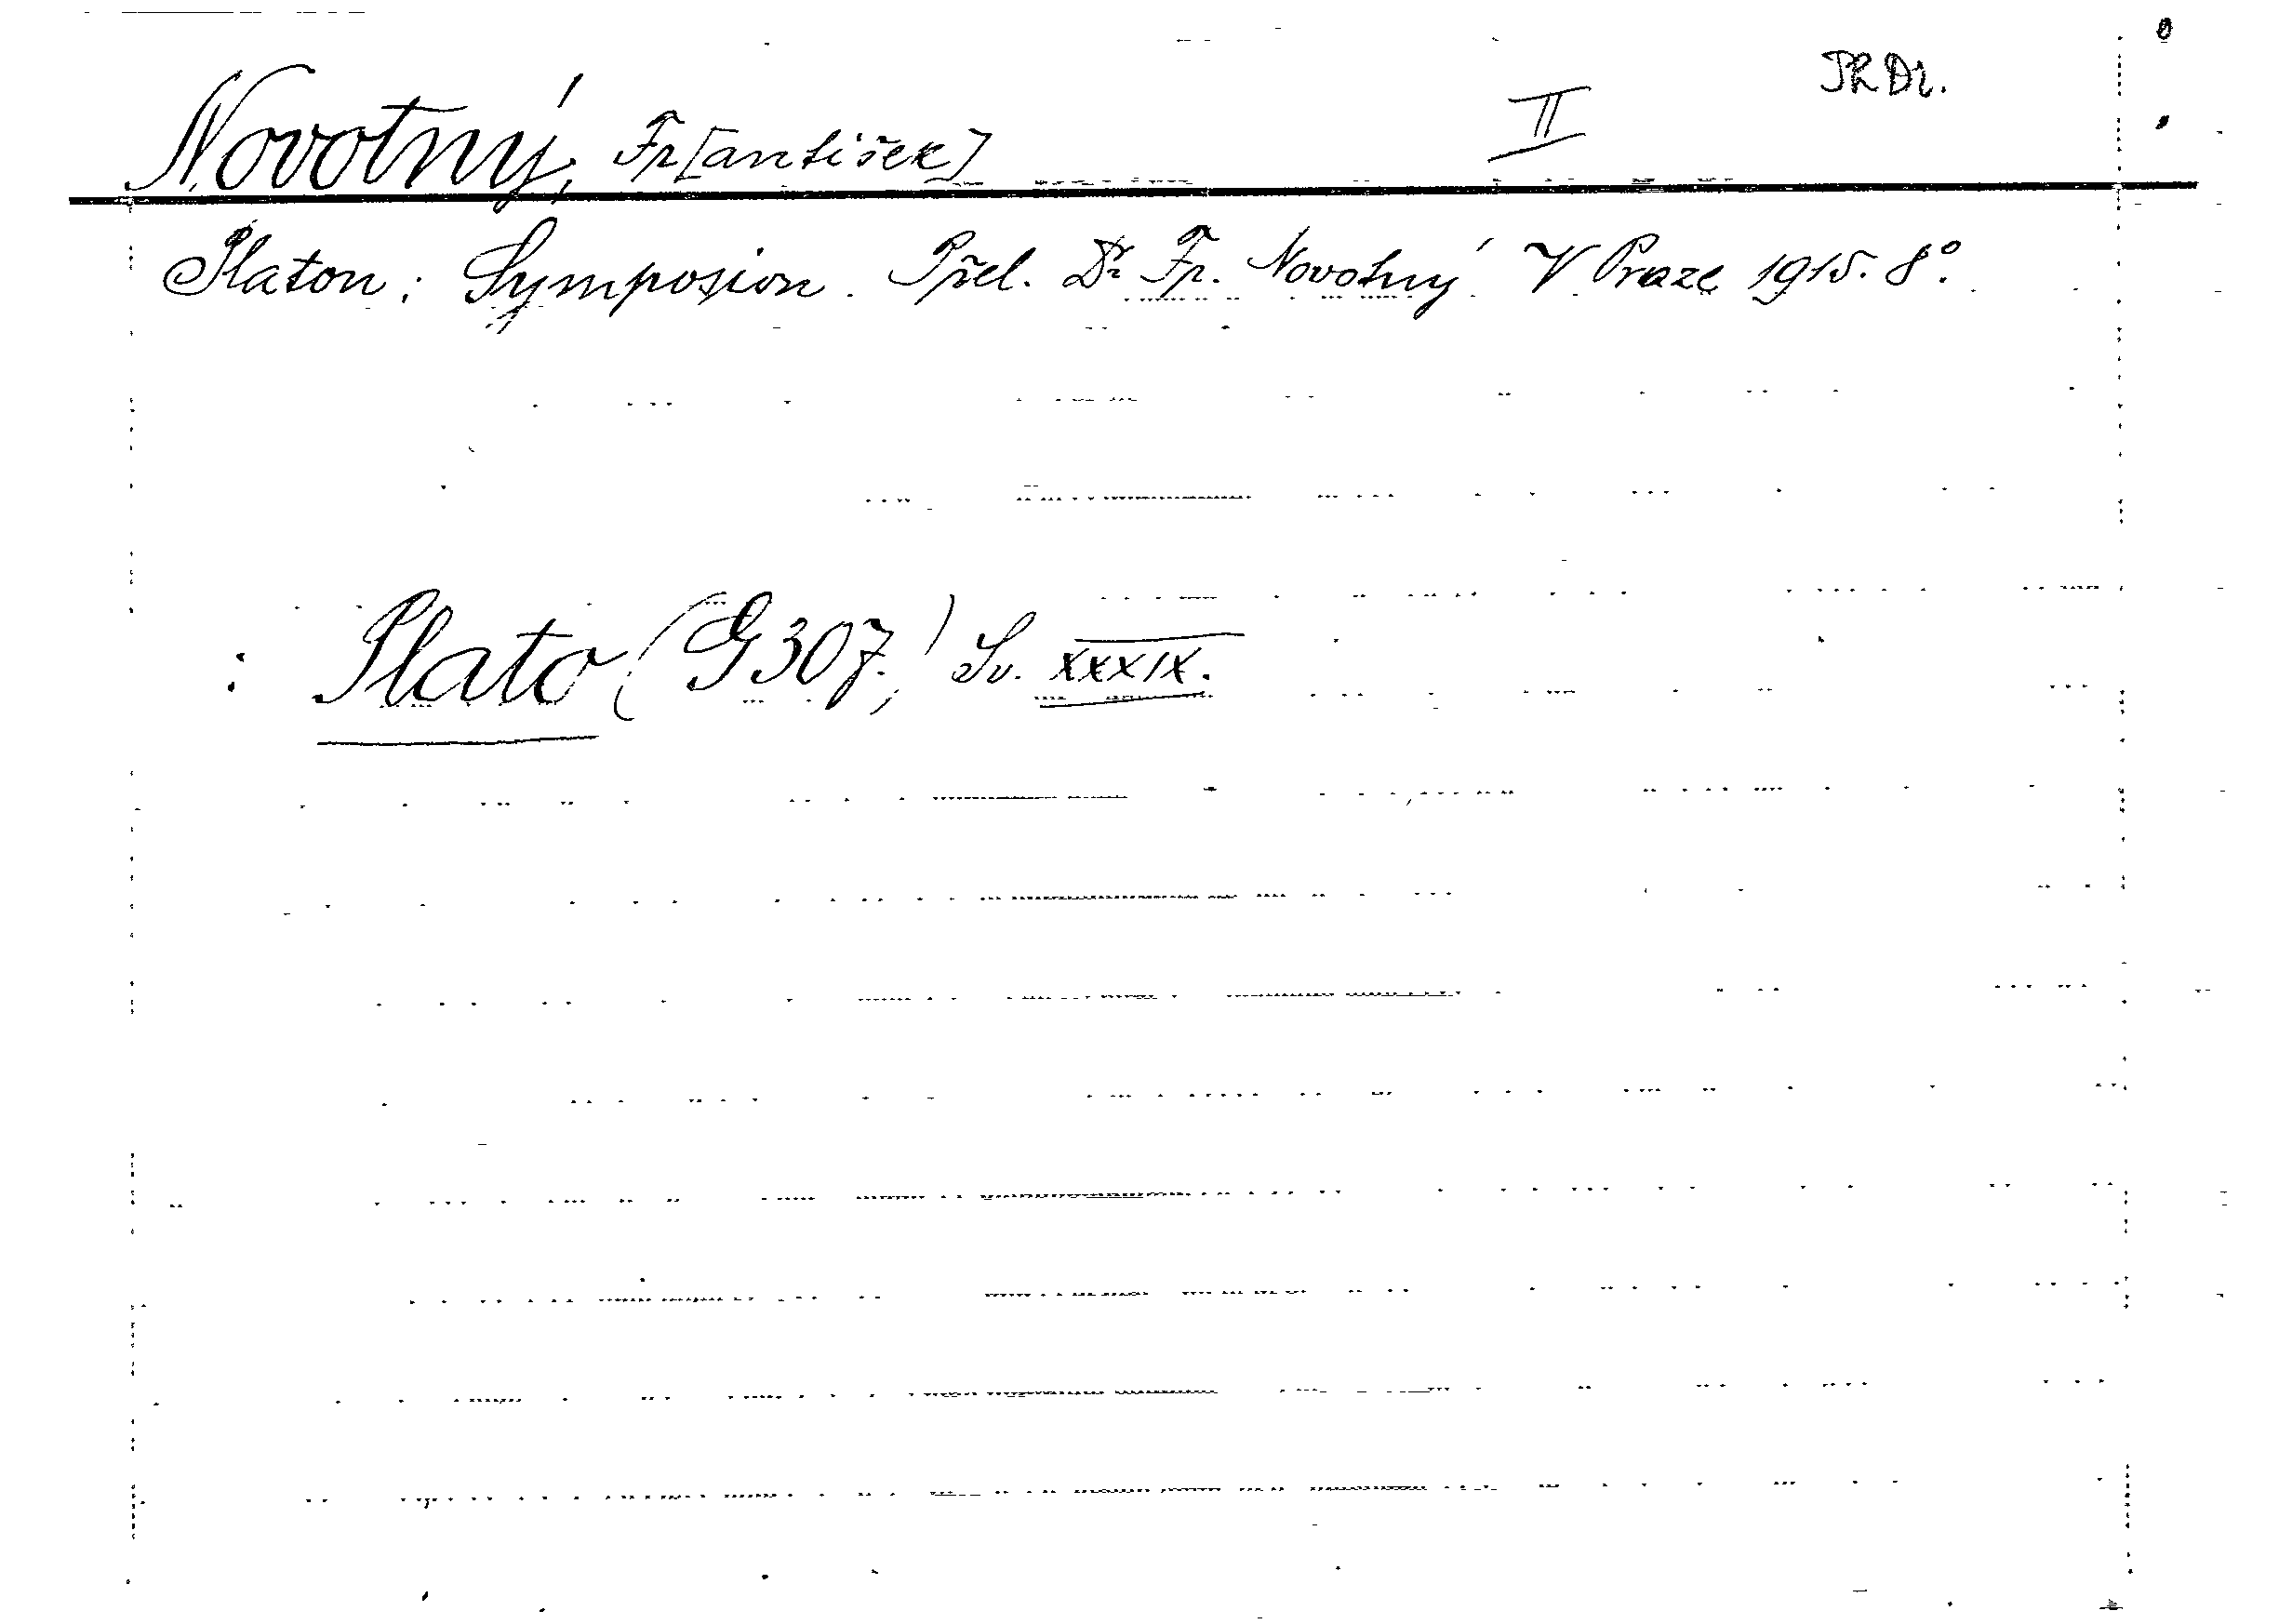 Novotný, Fr[antišek] II PhDr.
Platon: Symposion. Přel. Dr Fr. Novotný. V Praze 1915. 8°.
: Plato (G 307.) Sv. XXXIX.